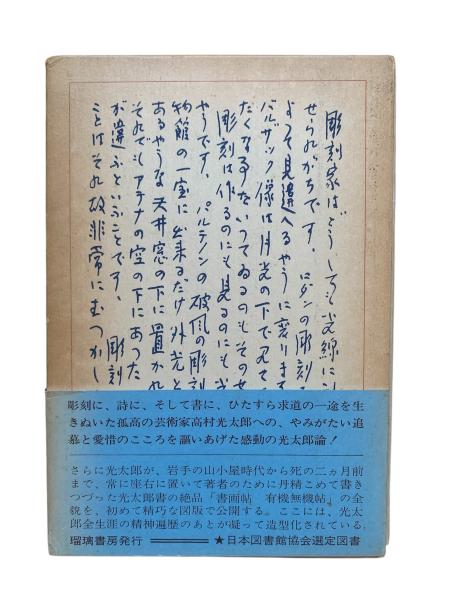 彫刻家はどうしても光線に
せられがちです。 ロダンの彫刻
よつて見違へるやうに変りま
バルザック像は月光の下で見て
たくなる
彫刻は作るのにも見るのにも
やうです。 パルテノンの破風の彫刻
物館の一室に出来るだけ外光と
あるやうな天井窓の下に置かれ
それでもアテナの空の下にあつた
が違ふといふことです。 彫刻
ことはそれ故非常にむつかし
彫刻に、詩に、そして書に、ひたすら求道の一途を生
きぬいた孤高の芸術家高村光太郎への、やみがたい追
慕と愛惜のこころを謳いあげた感動の光太郎論!
さらに光太郎が、岩手の山小屋時代から死の二ヵ月前
まで、常に座右に置いて著者のために丹精こめて書き
つづった光太郎書の絶品「書画帖 有機無機帖」の全
貌を、初めて精巧な図版で公開する。ここには、光太
郎全生涯の精神遍歴のあとが凝って造型化されている。
瑠璃書房発行 ★日本図書館協会選定図書